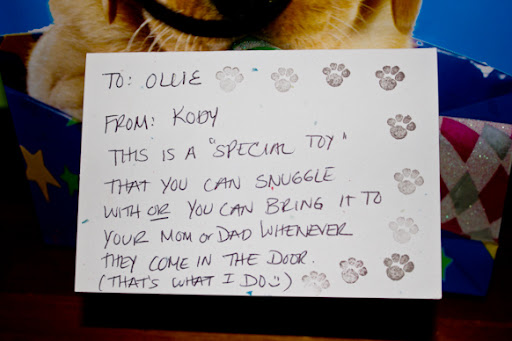 TO: OLLIE
FROM: KODY
THIS IS A "SPECIAL TOY"
THAT YOU CAN SNUGGLE
WITH OR YOU CAN BRING IT TO
YOUR MOM or DAD WHENEVER
THEY COME IN THE DOOR.
(THAT'S WHAT I DO☺)